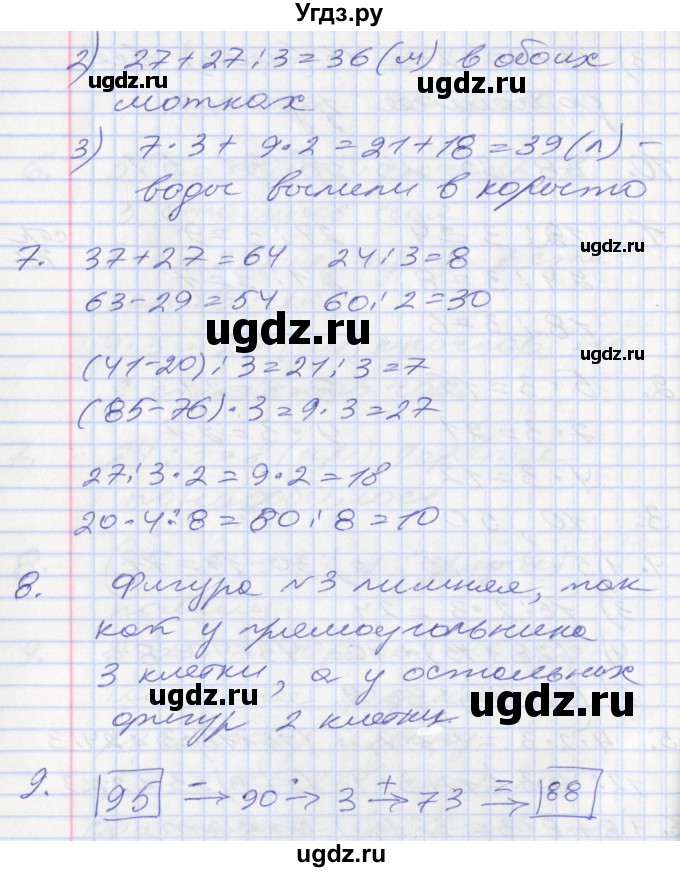 Угдз.ру
2) 27+27:3=36 (м) в обоих
мотках
3) 7·3+ 9·2=21+18=39(л) –
воды вылили в корыто
7. 37+27=64 24:3=8
63-29=54 60:2=30
(41-20):3=21:3=7
(85-76)·3=9·3=27
27:3·2=9·2=18
20·4:8=80:8=10
8. Фигура №3 лишняя, так
как у прямоугольника
3 клетки, а у остальных
фигур 2 клетки.
9. 95 -→ 90 :→ 3 +→ 73 =→ 88
ugdz.ru
ugdz.ru
ugdz.ru
ugdz.ru
ugdz.ru
ugdz.ru
ugdz.ru
ugdz.ru
ugdz.ru
ugdz.ru